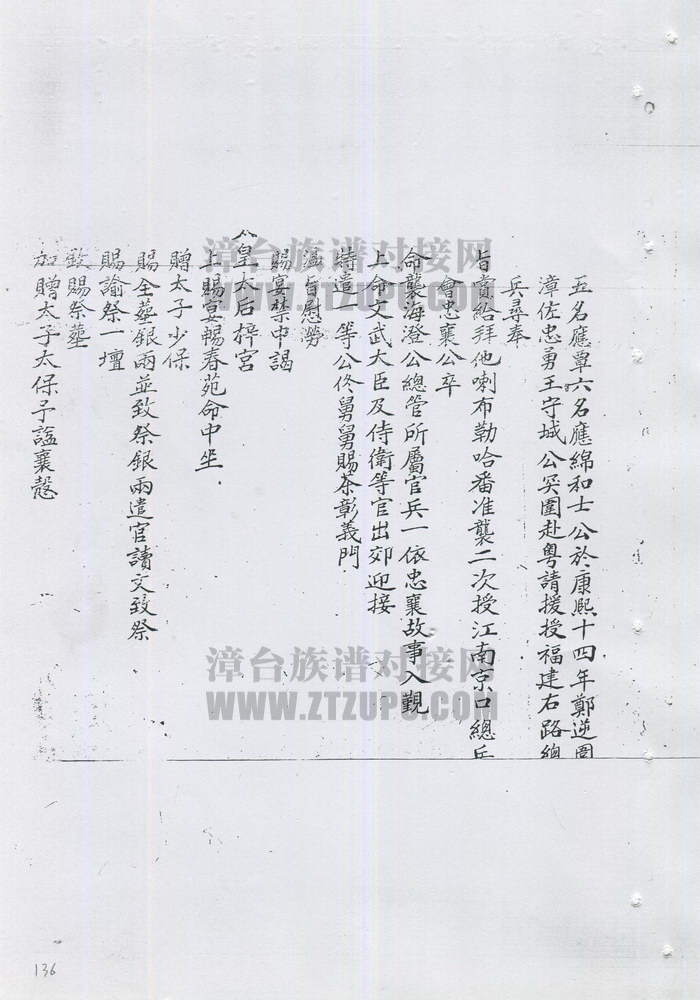 五名應覃六名應綿和士公於康熙十四年鄭逆圍
漳佐忠勇王守城公突圍赴粵請援授福建右路總
兵尋奉
旨賞給拜他喇布勒哈番准襲二次授江南京口總兵
會忠襄公卒
命襲海澄公總管所屬官兵一依忠襄故事入覲
上命文武大臣及侍衛等官出郊迎接
特遣一等公佟舅舅賜茶彰義門
溫旨慰勞
賜宴禁中謁
太皇太后梓宮
上賜宴暢春苑命中坐
贈太子少保
賜全葬銀兩並致祭銀兩遣官讀文致祭
賜諭祭一壇
致賜祭葬
加贈太子太保予諡襄愨
漳台族谱对接网
WWW.ZTZUPU.COM
漳台族谱对接网
WWW.ZTZUPU.COM
136